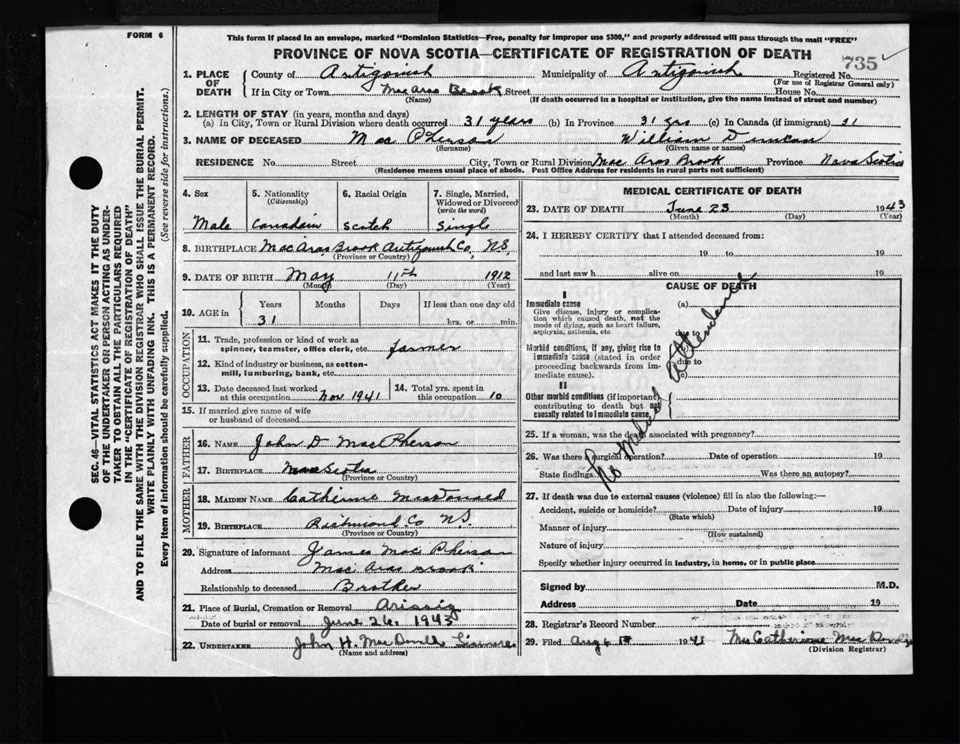 FORM 6
This form if placed in an envelope, marked "Dominion Statistics—Free, penalty for improper use $300," and properly addressed will pass through the mail "FREE"
PROVINCE OF NOVA SCOTIA—CERTIFICATE OF REGISTRATION OF DEATH
735
1. PLACE OF DEATH
County of Antigonish Municipality of Antigonish Registered No.
(For use of Registrar General only)
If in City or Town Mac Aras Brook Street House No.
(Name) (If death occurred in a hospital or institution, give the name instead of street and number)
2. LENGTH OF STAY (in years, months and days)
(a) In City, Town or Rural Division where death occurred 31 years (b) In Province 31 yrs (c) In Canada (if immigrant) 31
3. NAME OF DECEASED Mac Pherson William Duncan
(Surname) (Given name or names)
RESIDENCE No. Street City, Town or Rural Division Mac Aras Brook Province Nova Scotia
(Residence means usual place of abode. Post Office Address for residents in rural parts not sufficient)
4. Sex
Male
5. Nationality
(Citizenship)
Canadain
6. Racial Origin
Scotch
7. Single, Married, Widowed or Divorced
(write the word)
Single
8. BIRTHPLACE Mac Aras Brook Antigonish Co, NS,
(Province or Country)
9. DATE OF BIRTH May 11th 1912
(Month) (Day) (Year)
10. AGE in
Years Months Days If less than one day old
31 hrs. or min.
OCCUPATION
11. Trade, profession or kind of work as spinner, teamster, office clerk, etc. farmer
12. Kind of industry or business, as cotton-mill, lumbering, bank, etc.
13. Date deceased last worked at this occupation Nov 1941
14. Total yrs. spent in this occupation 10
15. If married give name of wife or husband of deceased
FATHER
16. NAME John D MacPherson
17. BIRTHPLACE Nova Scotia
(Province or Country)
MOTHER
18. MAIDEN NAME Catherine MacDonald
19. BIRTHPLACE Richmond Co NS.
(Province or Country)
20. Signature of informant James Mac Pherson
Address Mac Aras Brook
Relationship to deceased Brother
21. Place of Burial, Cremation or Removal Arisaig
Date of burial or removal June 26, 1943
22. UNDERTAKER John H.
(Name and address)
MEDICAL CERTIFICATE OF DEATH
23. DATE OF DEATH June 23 1943
(Month) (Day) (Year)
24. I HEREBY CERTIFY that I attended deceased from:
19 to 19
and last saw h alive on 19
CAUSE OF DEATH
I
Immediate cause (a)
Give disease, injury or complication which caused death, not the mode of dying, such as heart failure, asphyxia, asthenia, etc
Morbid conditions, if any, giving rise to immediate cause (stated in order proceeding backwards from immediate cause).
due to
II
Other morbid conditions (if important) contributing to death but not causally related to immediate cause.
No Medical Attendance
25. If a woman, was the death associated with pregnancy?
26. Was there a surgical operation? Date of operation 19
State findings Was there an autopsy?
27. If death was due to external causes (violence) fill in also the following:—
Accident, suicide or homicide? Date of injury 19
(State which)
Manner of injury
(How sustained)
Nature of injury
Specify whether injury occurred in industry, in home, or in public place
Signed by M.D.
Address Date 19
28. Registrar's Record Number
29. Filed Aug 6 1943 Mrs Catherine
(Division Registrar)
SEC. 46—VITAL STATISTICS ACT MAKES IT THE DUTY
OF THE UNDERTAKER OR PERSON ACTING AS UNDER-
TAKER TO OBTAIN ALL THE PARTICULARS REQUIRED
IN THE "CERTIFICATE OF REGISTRATION OF DEATH"
AND TO FILE THE SAME WITH THE DIVISION REGISTRAR WHO SHALL ISSUE THE BURIAL PERMIT.
WRITE PLAINLY WITH UNFADING INK. THIS IS A PERMANENT RECORD.
Every item of information should be carefully supplied. (See reverse side for instructions.)